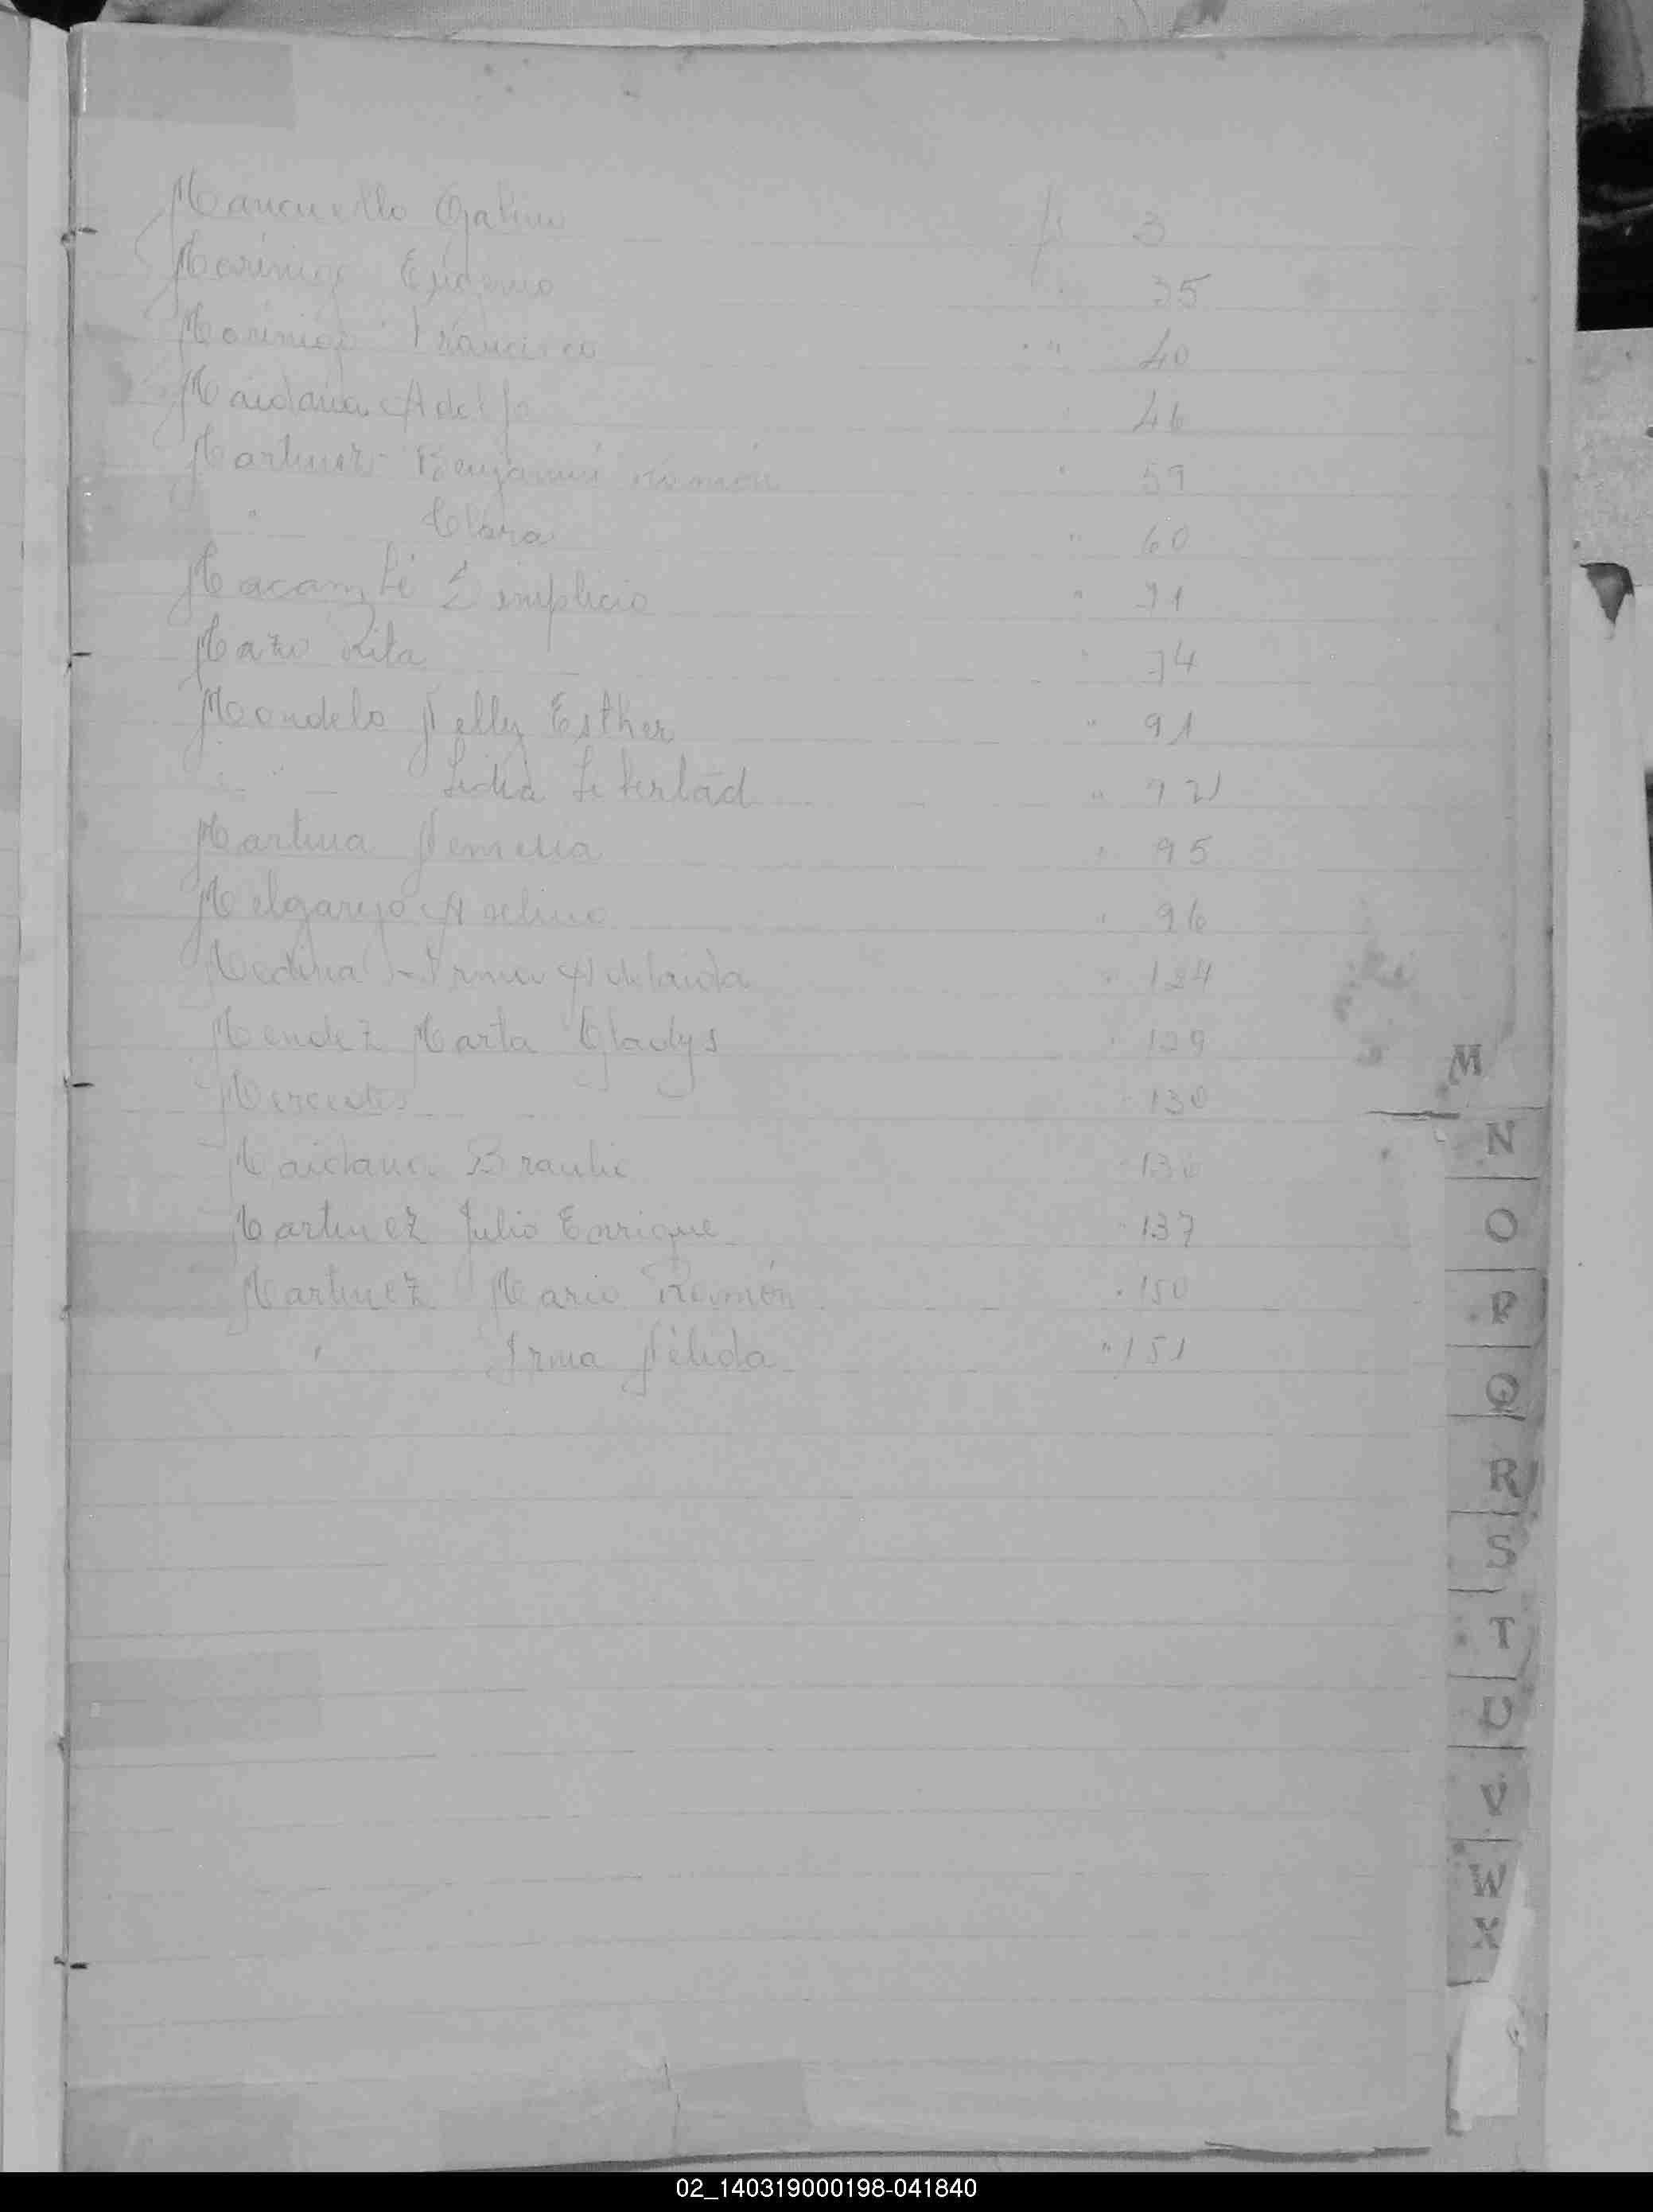 Mancuello Gabino fs 3
Marinigo Eugenio " 35
Marinigo Francisco " " 40
Maidana Adolfo " 46
Martinez Benjamin Ramón " 59
" Clara " 60
Simplicio " 71
Mazo Rita " 74
Mondelo Nelly Esther " 91
" " Lidia Libertad " 92
Martina " 95
Melgarejo Avelino " 96
Medina Irma Adelaida " 124
Mendez Marta Gladys " 129
Mercedes " 130
Maidana Braulio " 130
Martinez Julio Enrique " 137
Martinez Mario Ramón " 150
" Irma Nélida " 151
M
N
O
P
Q
R
S
T
U
V
W
X
02_140319000198-041840